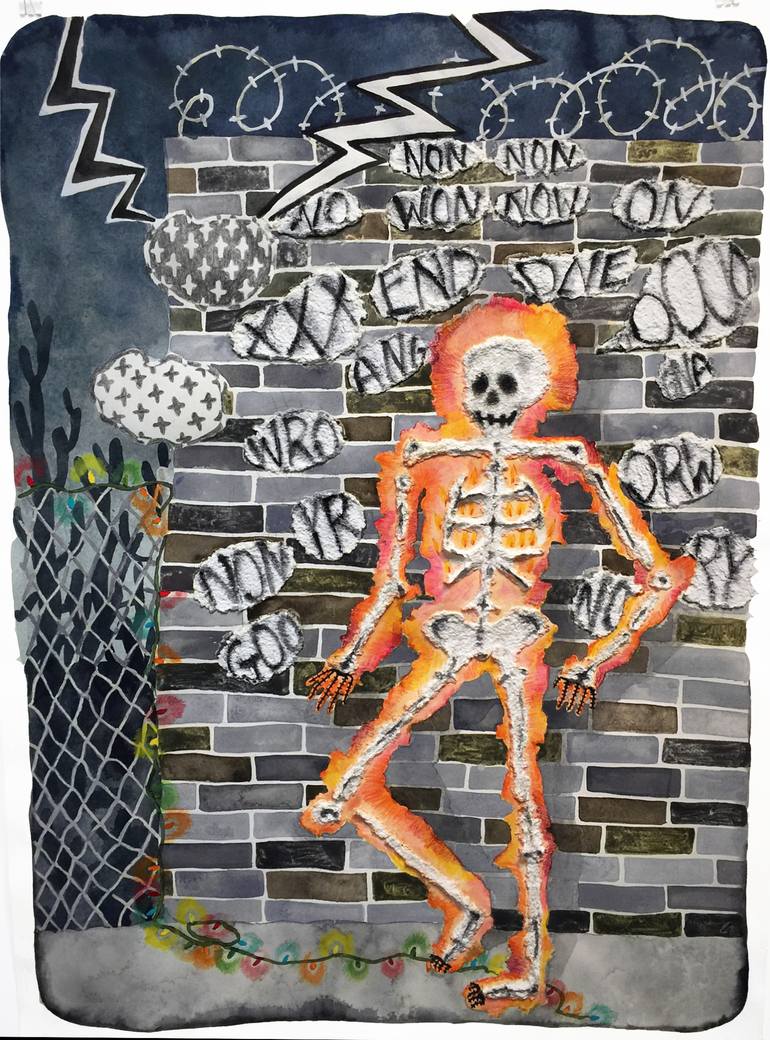 NON NON
NO WON NOW ON
XXX END ONE OOOO
ANG NA
WRO ORW
YR PY
NON NO
GOO